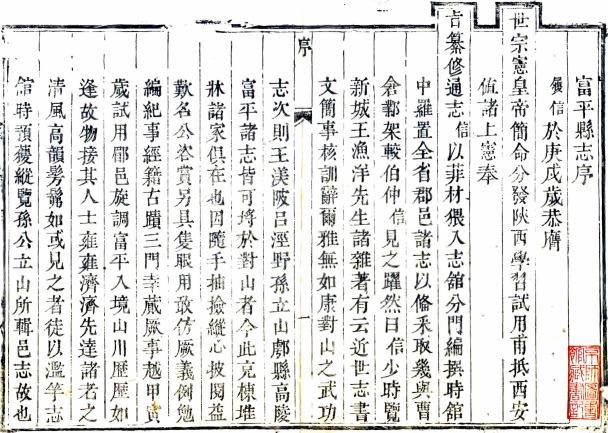 富平縣志序
履信於庚戌歲恭膺
世宗憲皇帝簡命分發陝西學習試用甫抵西安
値諸上憲奉
旨纂修通志信以菲材猥入志舘分門編撰時舘
中羅置全省郡邑諸志以備采取幾與曹
倉鄴架較伯仲信見之躍然曰信少時覽
新城王漁洋先生諸雜著有云近世志書
文簡事核訓辭爾雅無如康對山之武功
序
一
志次則王渼陂呂涇野孫立山鄠縣高陵
富平諸志皆可埒於對山者今此充棟堆
牀諸家俱在也因隨手抽撿縱心披閱益
歎名公咨賞另具隻眼用敢仿厥義例勉
編紀事經籍古蹟三門幸蕆厥事越甲寅
歲試用鄜邑旋調富平入境山川歷歷如
逢故物接其人士雍雍濟濟先達諸者之
清風高韻髣髴如或見之者徒以濫竽志
舘時預獲縱覽孫公立山所輯邑志故也